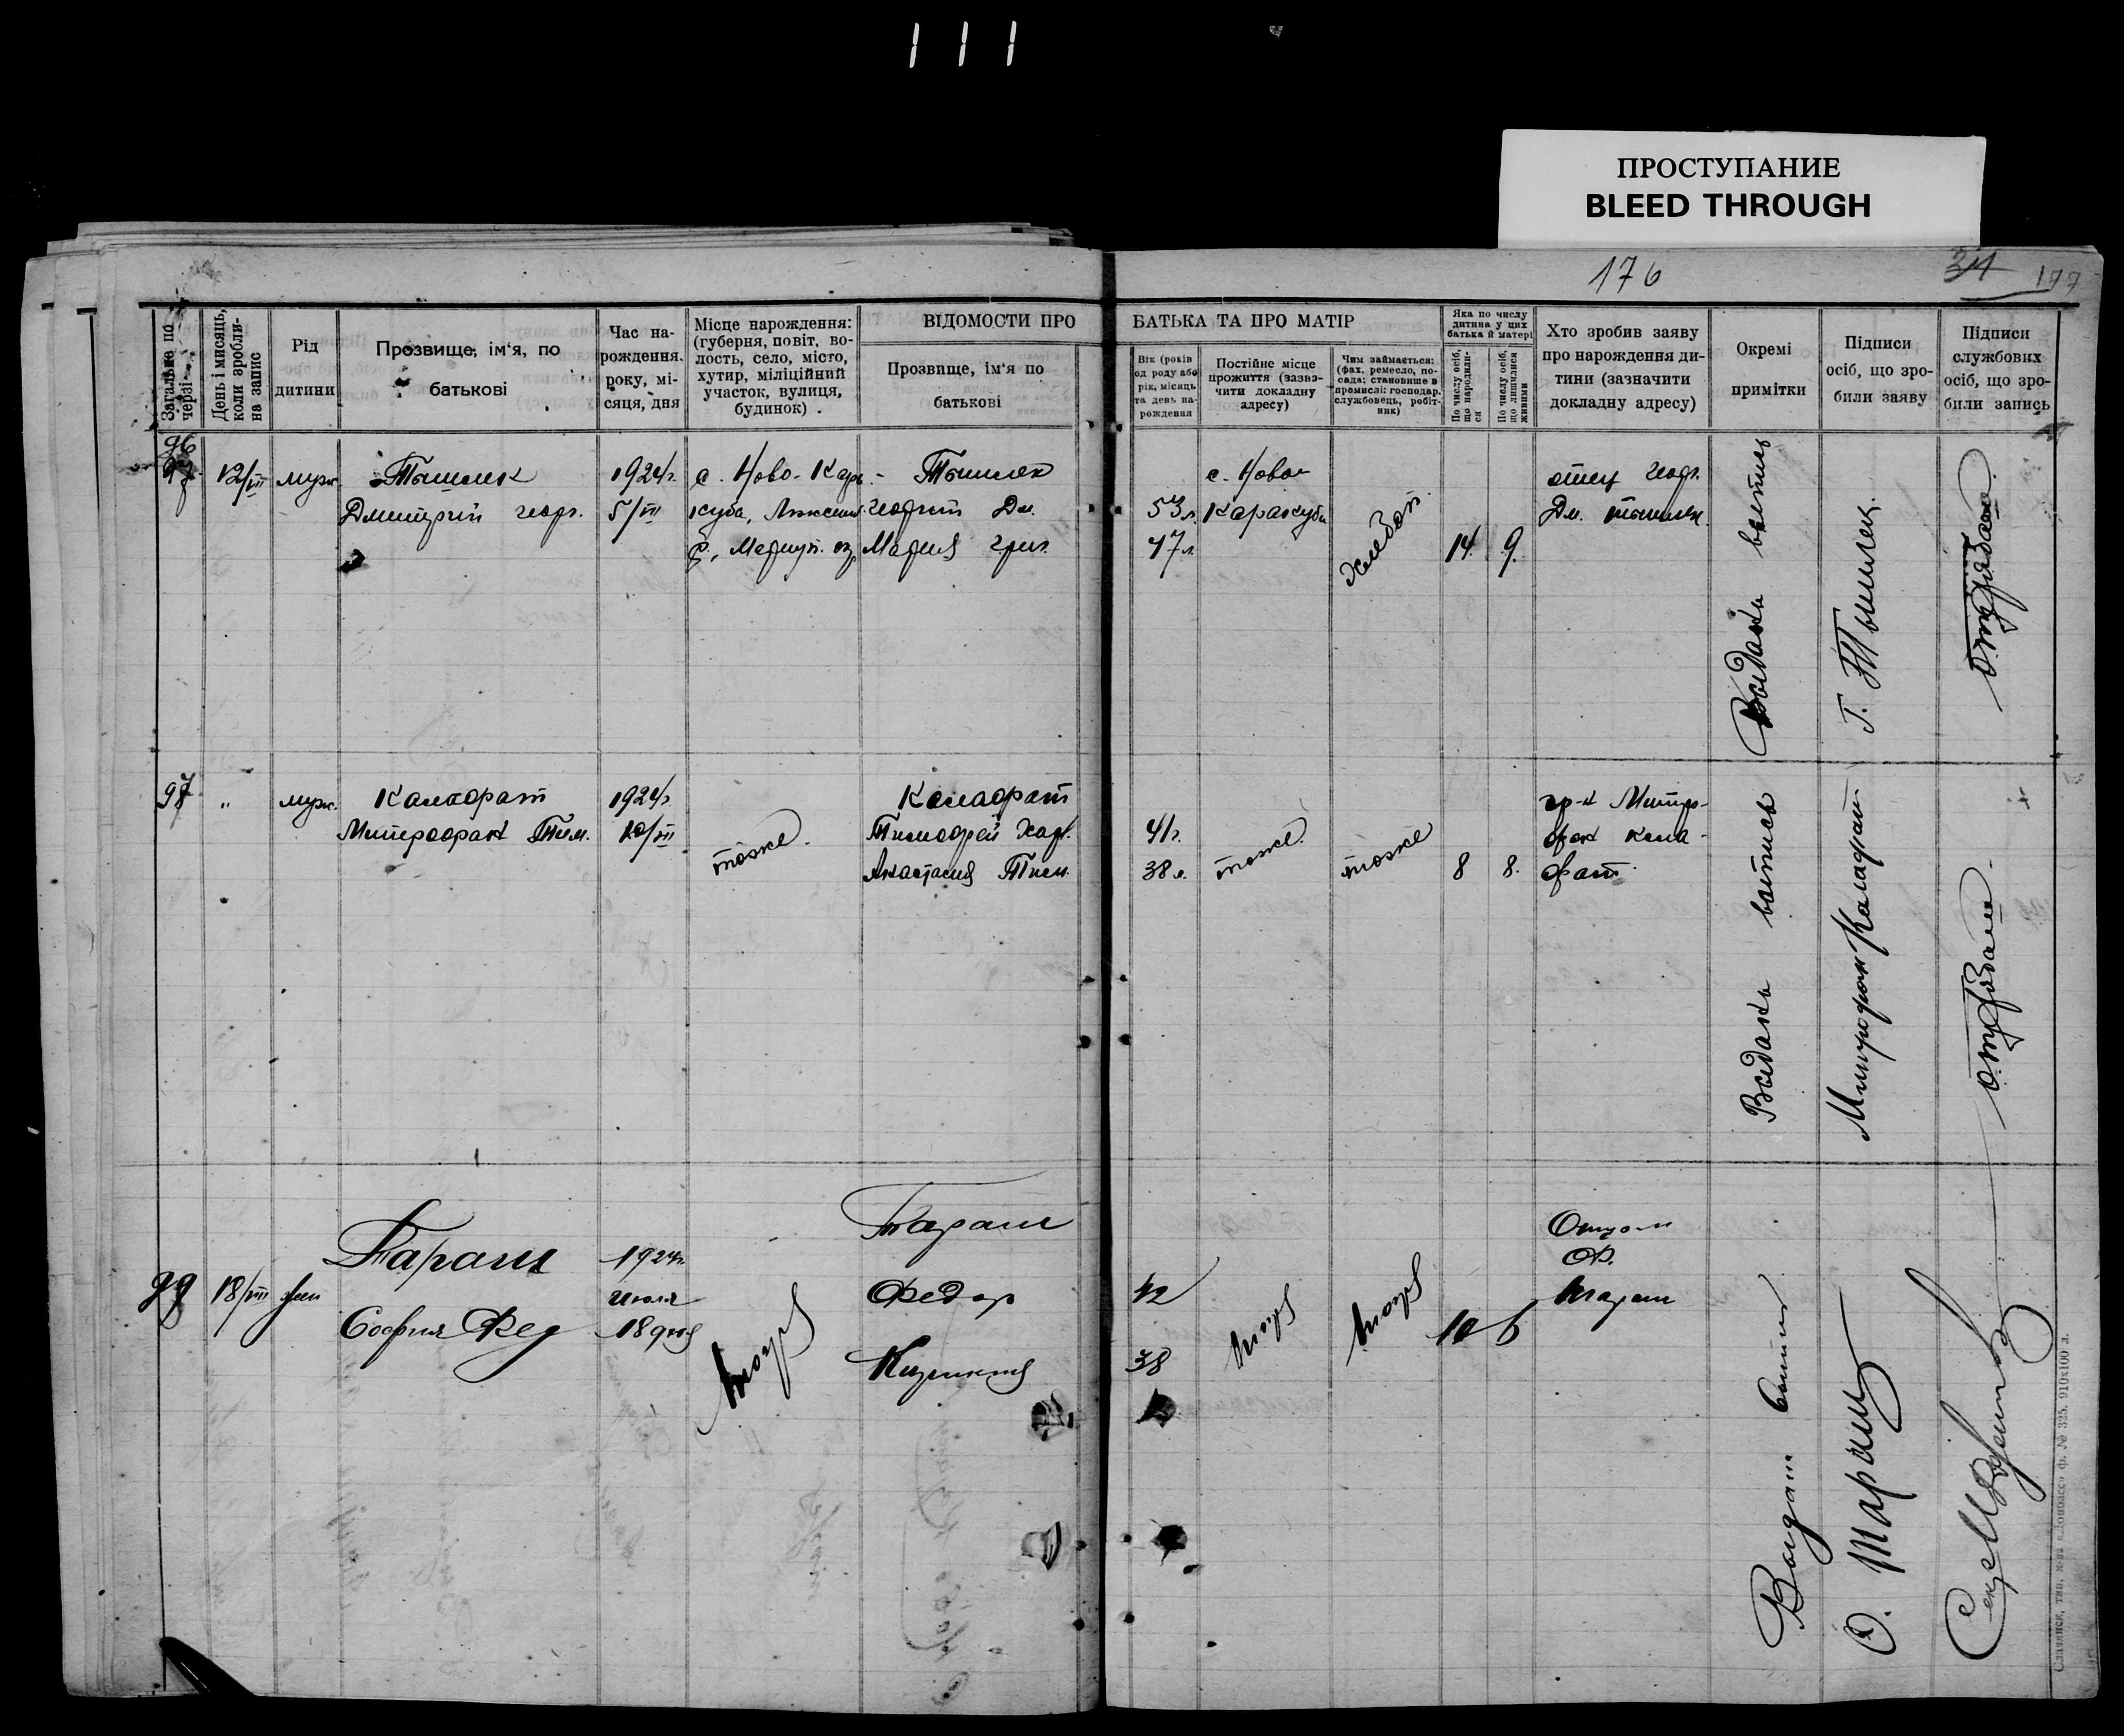 111
ПРОСТУПАНИЕ
BLEED THROUGH
176
34
177
Загальне по черзі
День і мисяць, коли зробли- на запис
Рід дитини
Прозвище, ім'я, по батькові
Час на- рождення. року, мі- сяця, дня
Місце нарождення: (губерня, повіт, во- лость, село, місто, хутир, міліційний участок, вулиця, будинок).
ВІДОМОСТИ ПРО БАТЬКА ТА ПРО МАТІР
Прозвище, ім'я по батькові
Вік (років од роду або рік, місяць та день на- рождення
Постійне місце прожиття (зазна- чити докладну адресу)
Чим займається: (фах, ремесло, по- сада; становище в промислі: господар, службовець, робіт- ник)
Яка по числу дитина у цих батька й матері
По числу осіб, що народили- ся
По числу осіб, що лишилися живими
Хто зробив заяву про нарождення ди- тини (зазначити докладну адресу)
Окремі примітки
Підписи осіб, що зро- били заяву
Підписи службових осіб, що зро- били запись
96
12/VIII
муж.
Тышлек
Дмитрий Георг.
1924г.
5/VIII
с. Ново-Кара-
куба,
Мариуп.
Тышлек
Георгий Дм.
Мария Григ.
53 л.
47 л.
с. Ново-
Каракуба
Хлебоп.
14
9.
отец Георг.
Дм. Тышлек.
Выдана выпись
Г. Тышлек
97
"
муж.
Калафат
Митрофан Тим.
1924г.
10/VII
тоже.
Калафат
Тимофей Хар.
Анастасия Тим.
41г.
38 л.
тоже.
тоже
8
8.
гр-н Митро-
фан Кала-
фат.
Выдана выпись
Митрофан Калафат
99
18/VIII
жен
Тараш
София Фед
1924г.
июля
18 дня
Тараш
Федор
42
38
10
6
Ф.
Тараш
Ф. Тараш
Славянск, тип. ф. № 325. 910х100 л.